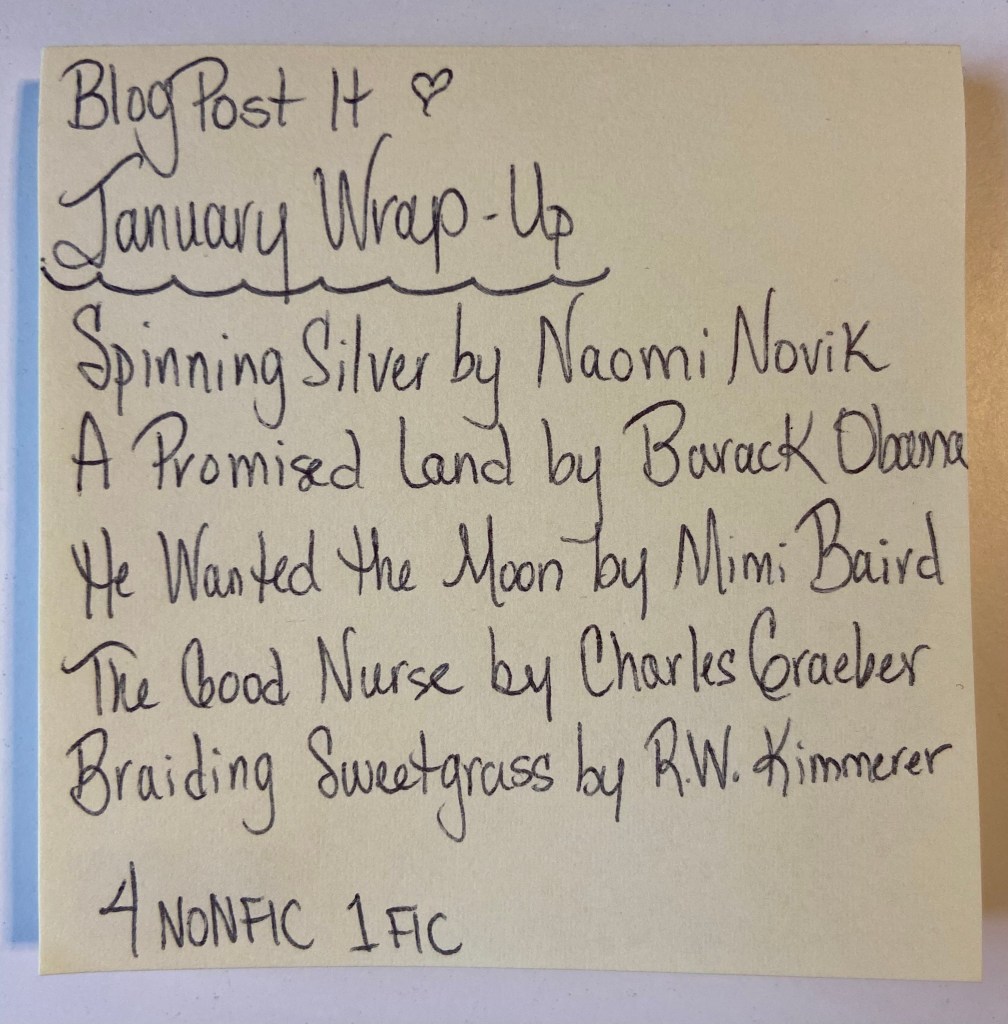 Blog Post It ♡
January Wrap-Up
Spinning Silver by Naomi Novik
A Promised Land by Barack Obama
He Wanted the Moon by Mimi Baird
The Good Nurse by Charles Graeber
Braiding Sweetgrass by R.W. Kimmerer
4 NONFIC 1 FIC